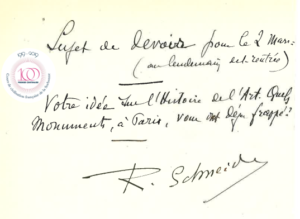 Sujet de devoir pour le 2 Mars
(au lendemain de la rentrée)
Votre idée sur l'Histoire de l'Art. Quels
Monuments, à Paris, vous ont déjà frappé?
R. Schneider
100